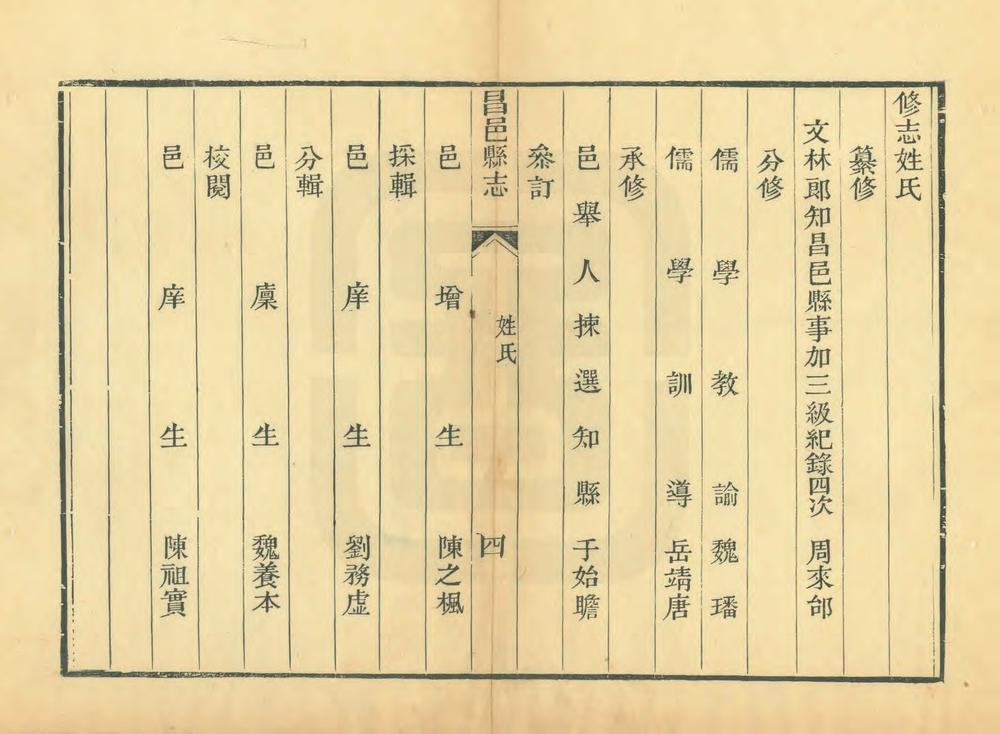 修志姓氏
纂修
文林郎知昌邑縣事加三級紀錄四次 周來邰
分修
儒學教諭魏璠
儒學訓導岳靖唐
承修
邑舉人揀選知縣于始瞻
叅訂
昌邑縣志 姓氏 四
邑增生陳之楓
採輯
邑庠生劉務虛
分輯
邑廩生魏養本
校閱
邑庠生陳祖實